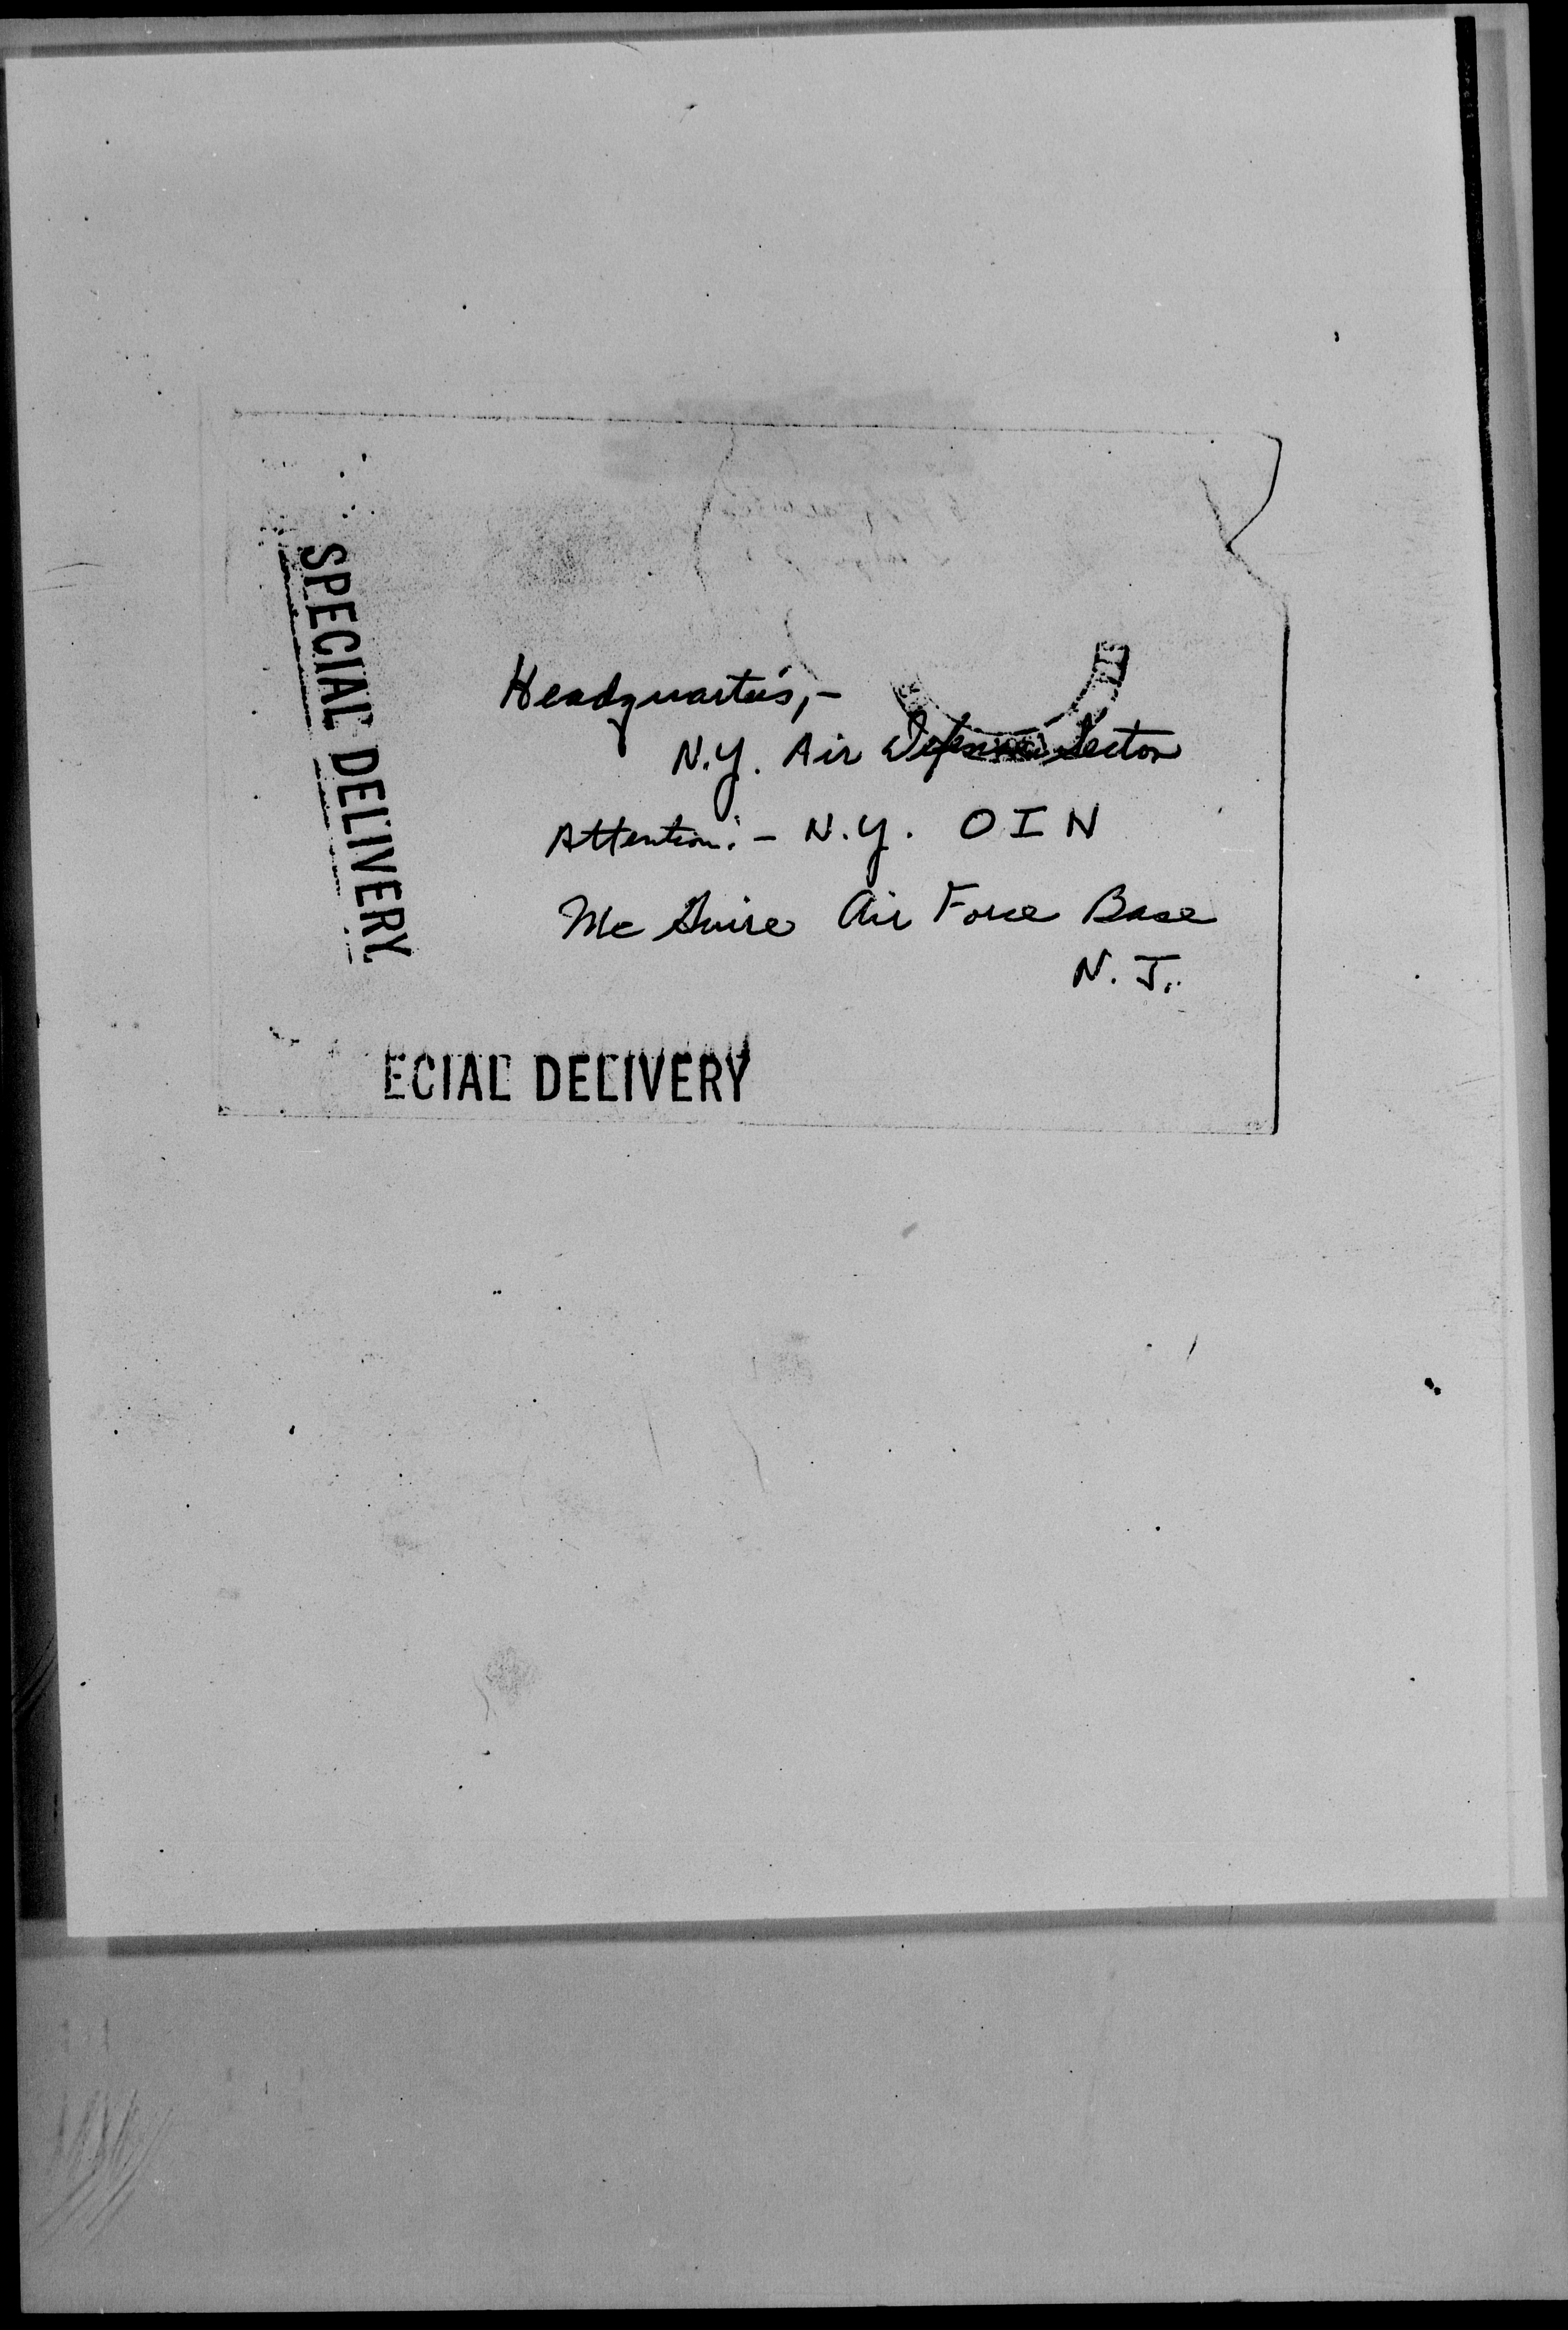 SPECIAL DELIVERY
Headquarters,-
N.Y. Air Defense Sector
Attention:- N.Y. OIN
Mc Guire Air Force Base
N. J.
ECIAL DELIVERY